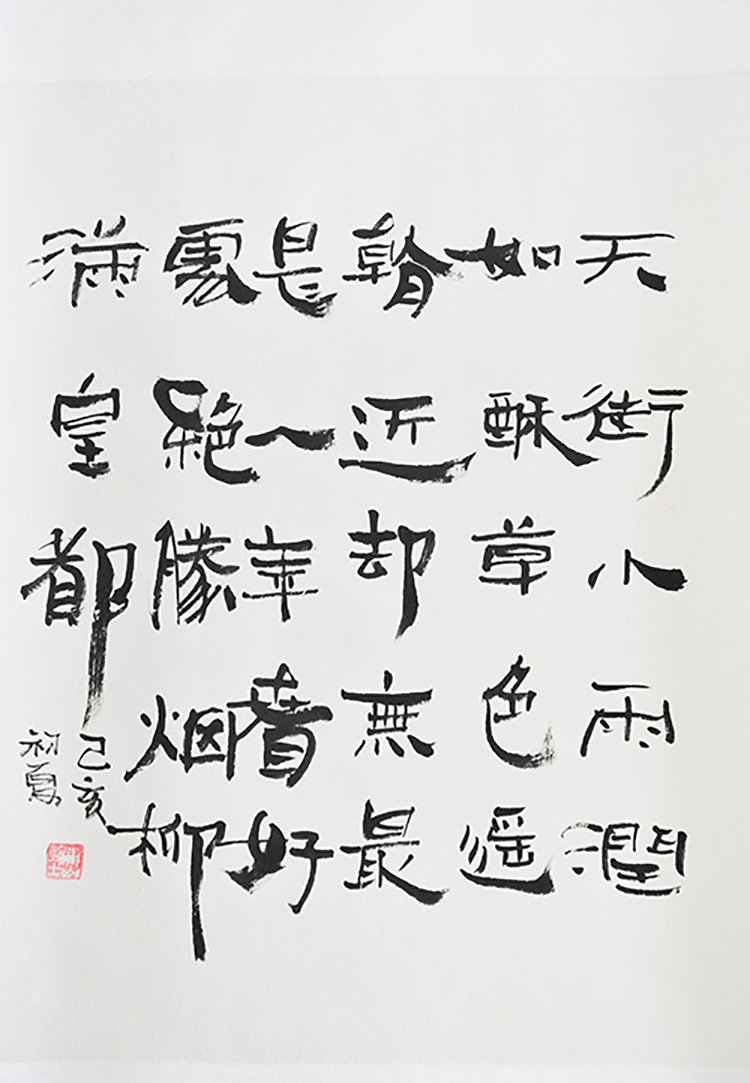 天街小雨潤
如酥草色遙
看近却無最
是一年春好
處絕勝烟柳
滿皇都
己亥
初夏